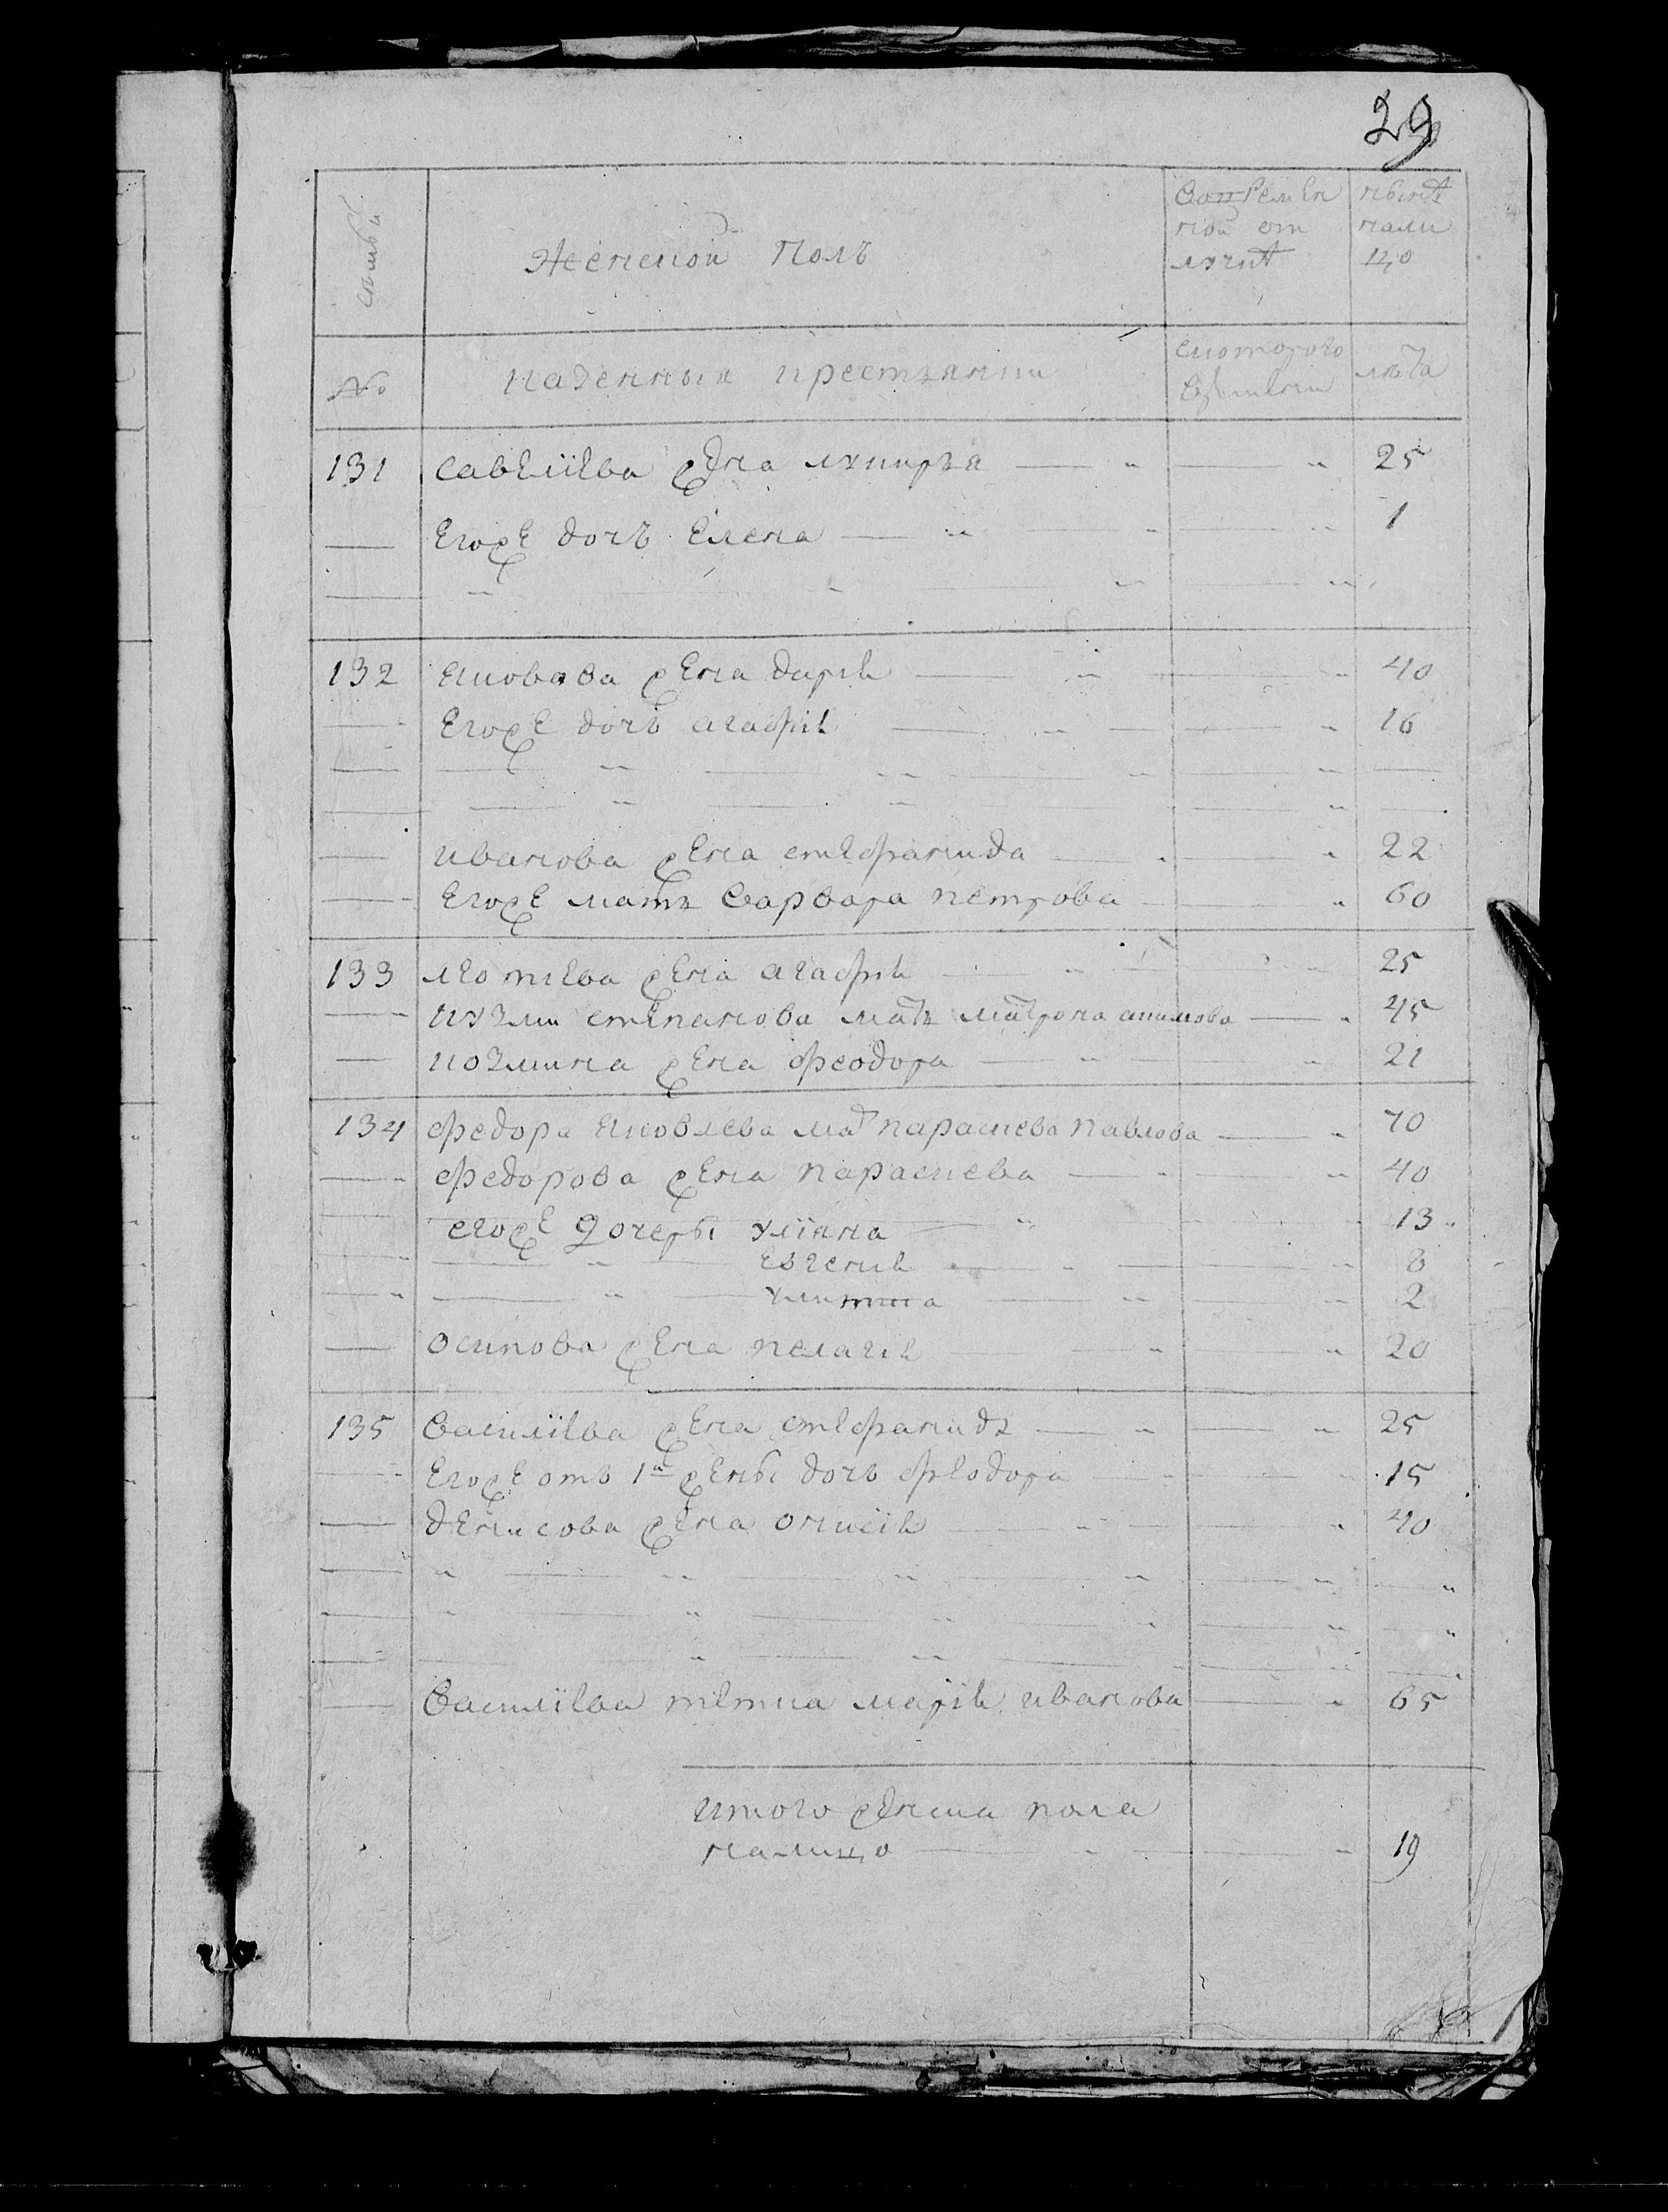 29
семьи
Женской Полъ
Во временной отлучкѣ
Нынѣ налицо
№
казенныя крестьянки
Скоторого времени
лѣта
131 Савельева жена лукирья 25
Егоже дочь Елена 1
132 Яковова жена дарья 40
Егоже дочь агафья 16
иванова жена стефанида 22
Егоже мать варвара петрова 60
133 леонтьева жена агафья 25
кузми степанова мать матрона акимова 45
козмина жена феодора 21
134 федора яковлева мать параскева павлова 70
федорова жена параскева 40
егоже дочери улияна 13
евгения 8
улита 2
осипова жена пелагия 20
135 Васильева жена стефанида 25
Егоже отъ 1й жены дочь феодора 15
денисова жена оксинья 40
Васильева тетка марья иванова 65
итого женска пола
налицо 19